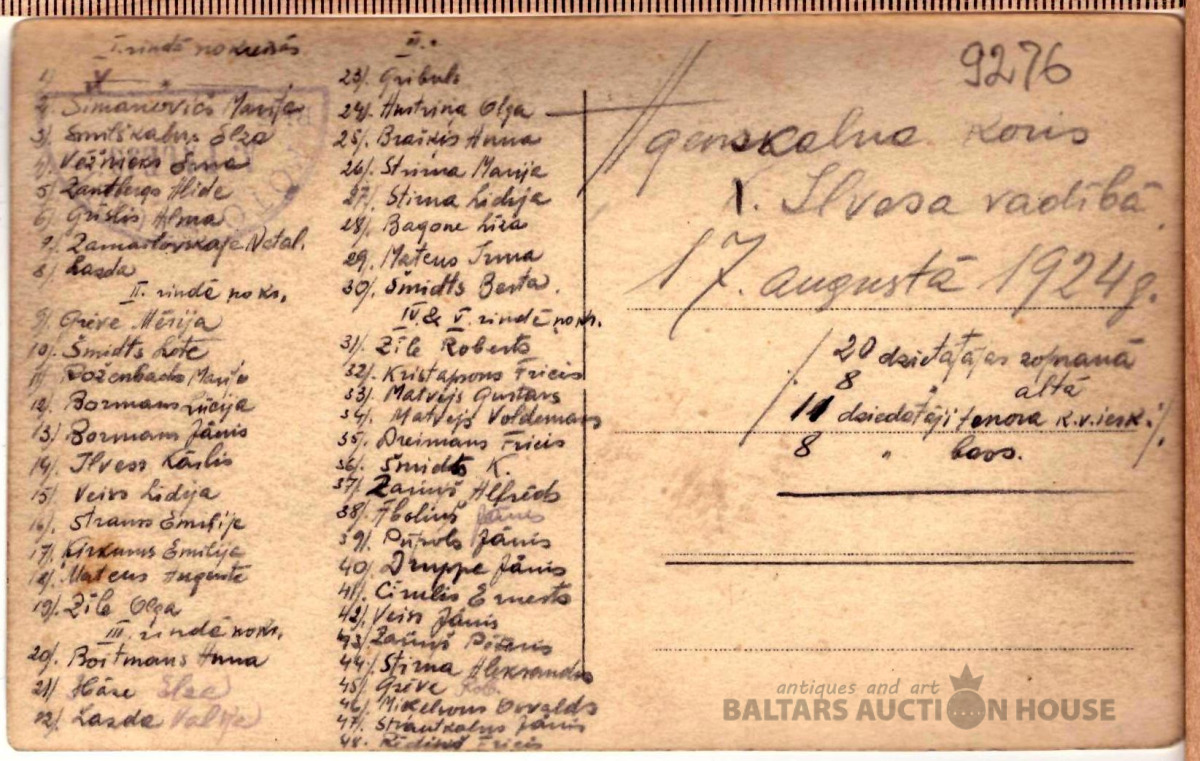 I. rindā no kreisās
1)
2) Simanovičs Marija
3) Smilškalns Elza
4) Vēžnieks Erna
5) Zandbergs Alide
6) Grīslis Alma
7) Natal.
8) Lazda
II. rindē no kr.
9) Grēve Mērija
10) Šmidts Lote
11) Roženbachs Marija
12) Bormans Lūcija
13) Bormans Jānis
14) Ilvess Kārlis
15) Veiss Lidija
16) Strauss Emilije
17) Emilija
18) Mateus Auguste
19) Zīle Olga
III. rindē no kr.
20) Boitmans Anna
21) Hāze Elza
22) Lazda Valija
III.
23) Gribuls
24) Austriņa Olga
25) Braikis Anna
26) Stirna Marija
27) Stirna Lidija
28) Bagone Līza
29) Mateus Irma
30) Šmidts Berta.
IV. & V. rindē no kr.
31) Zīle Roberts
32) Kristapsons Fricis
33) Matvejs Gustavs
34) Matvejs Voldemars
35) Dreimans Fricis
36) Šmidts K.
37) Zariņš Alfrēds
38) Āboliņš Jānis
39) Jānis
40) Druppe Jānis
41) Cīrulis Ernests
42) Veiss Jānis
43) Zariņš Pēteris
44) Stirna Aleksandrs
45) Grēve Rob.
46) Miķelsons Osvalds
47) Strautkalns Jānis
48. Fricis
9276
Āgenskalna Koris
K. Ilvesa vadībā
17. augustā 1924g.
/ 20 dziedātājas sopranā
8 " altā
11 dziedātāji tenora k.v.iesk. /.
8 " bass.
antiques and art
BALTARS AUCTION HOUSE